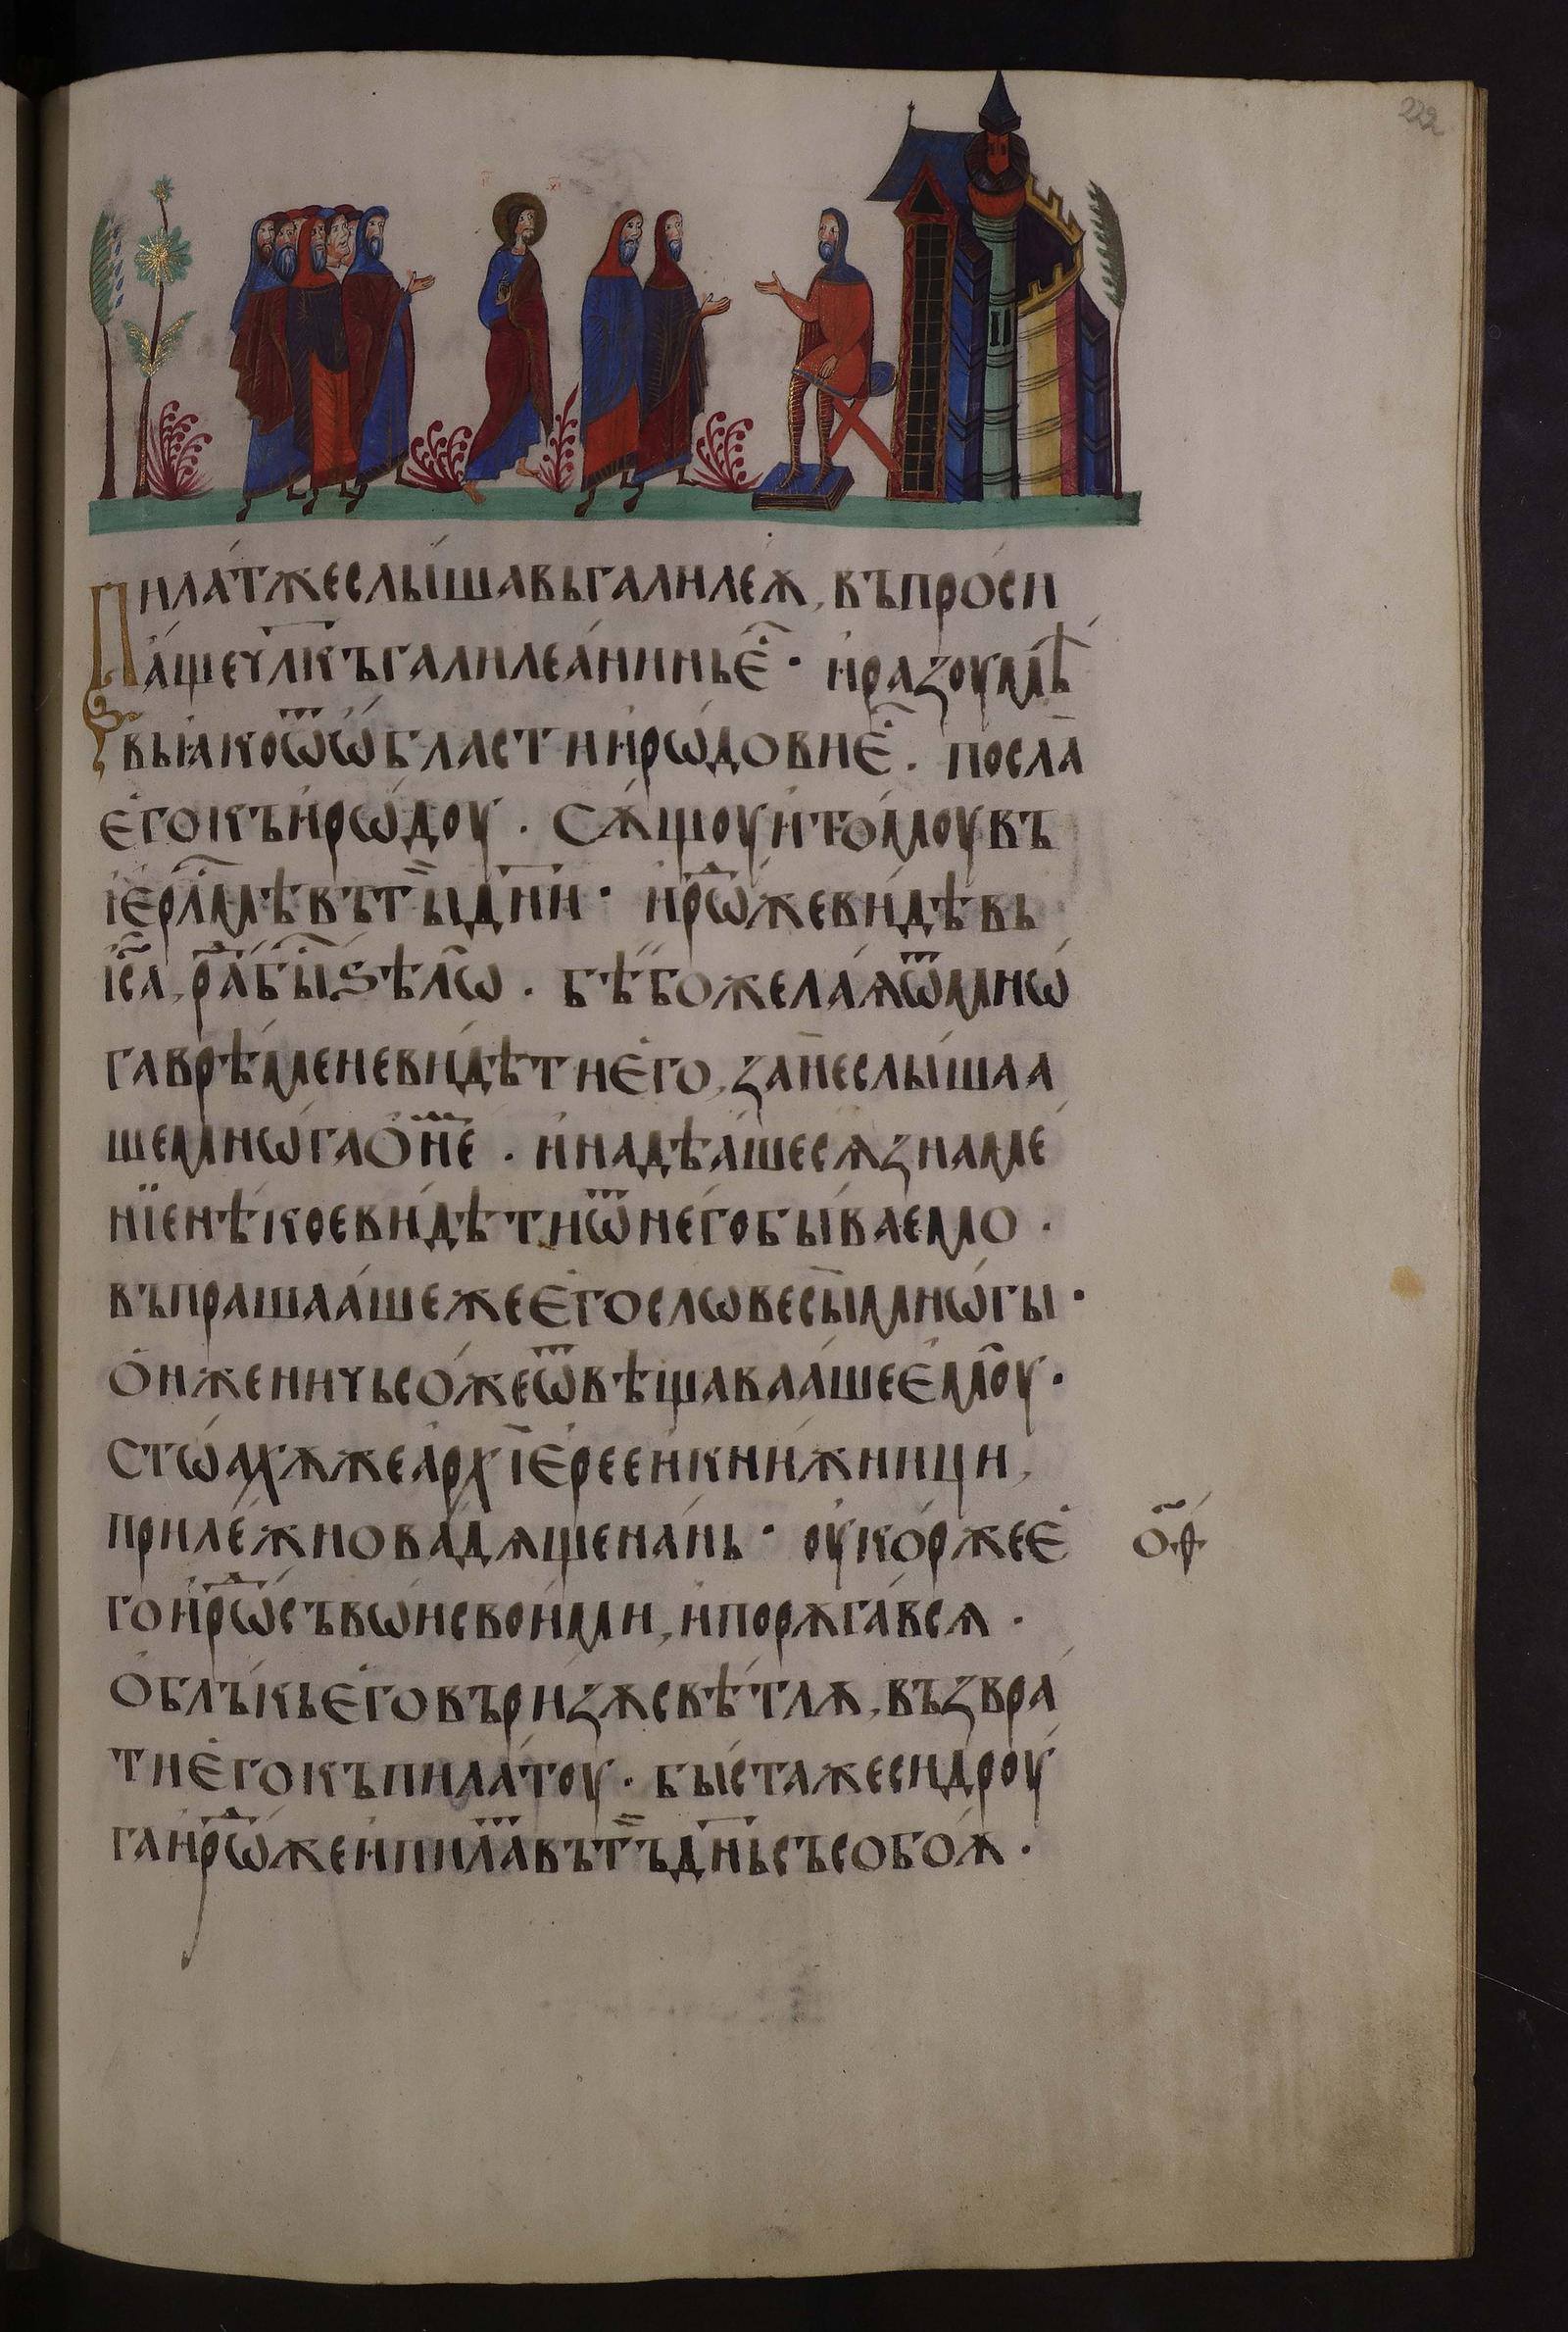 222
Пила́тжеслы́шавьгалиле́ѫ, въпро́си
а́щечл҃къгалилеа́нинье҆̑· и҆разоумѣ́
вьꙗ́коѿѡ҆́бластии҆рѡ́довие҆̑. посла̀
е҆гокъи҆рѡ́доу. Сѫ́щоуи҆то́моувъ
і҆ерл҃мѣвъты̏дн҃и· и҆рѡ́ⷣжеви́дѣвь
і҆с҃а, ра́ⷣбы́ⷭ҇ѕѣлѡ̀. бѣ́божела́ѧѿмнѡ́
гаврѣ́меневи́дѣтие҆го, занѐслы́шаа
шемнѡ́гао҆́не́ⷨ. и҆надѣа́шесѧзнаме́
нїенѣ́коеви́дѣтиѿнего́быва́емо.
въпрашаа́шежее҆гословесы̀мнѡ́гы·
о҆́нженичьсо́жеѿвѣщаваа́шее҆моу̀.
Стѡа́хѫжеа҆рхїе҆ре́еи҆кни́жници,
приле́жнова́дѧщена́нь· оу҆ко́ржее҆
ѻ҃ф
гои҆рѡ́ⷣсъвѡ́исвои́ми, и҆порѫга́всѧ.
О҆блъ́кье҆говъри́зѫсвѣ́тлѫ, възвра́
тие҆гокъпила́тоу. бы́стажесидроу́
гаи҆рѡ́ⷣжеи҆пила́ⷮвътъ̏дн҃ьсъсобо́ѫ.